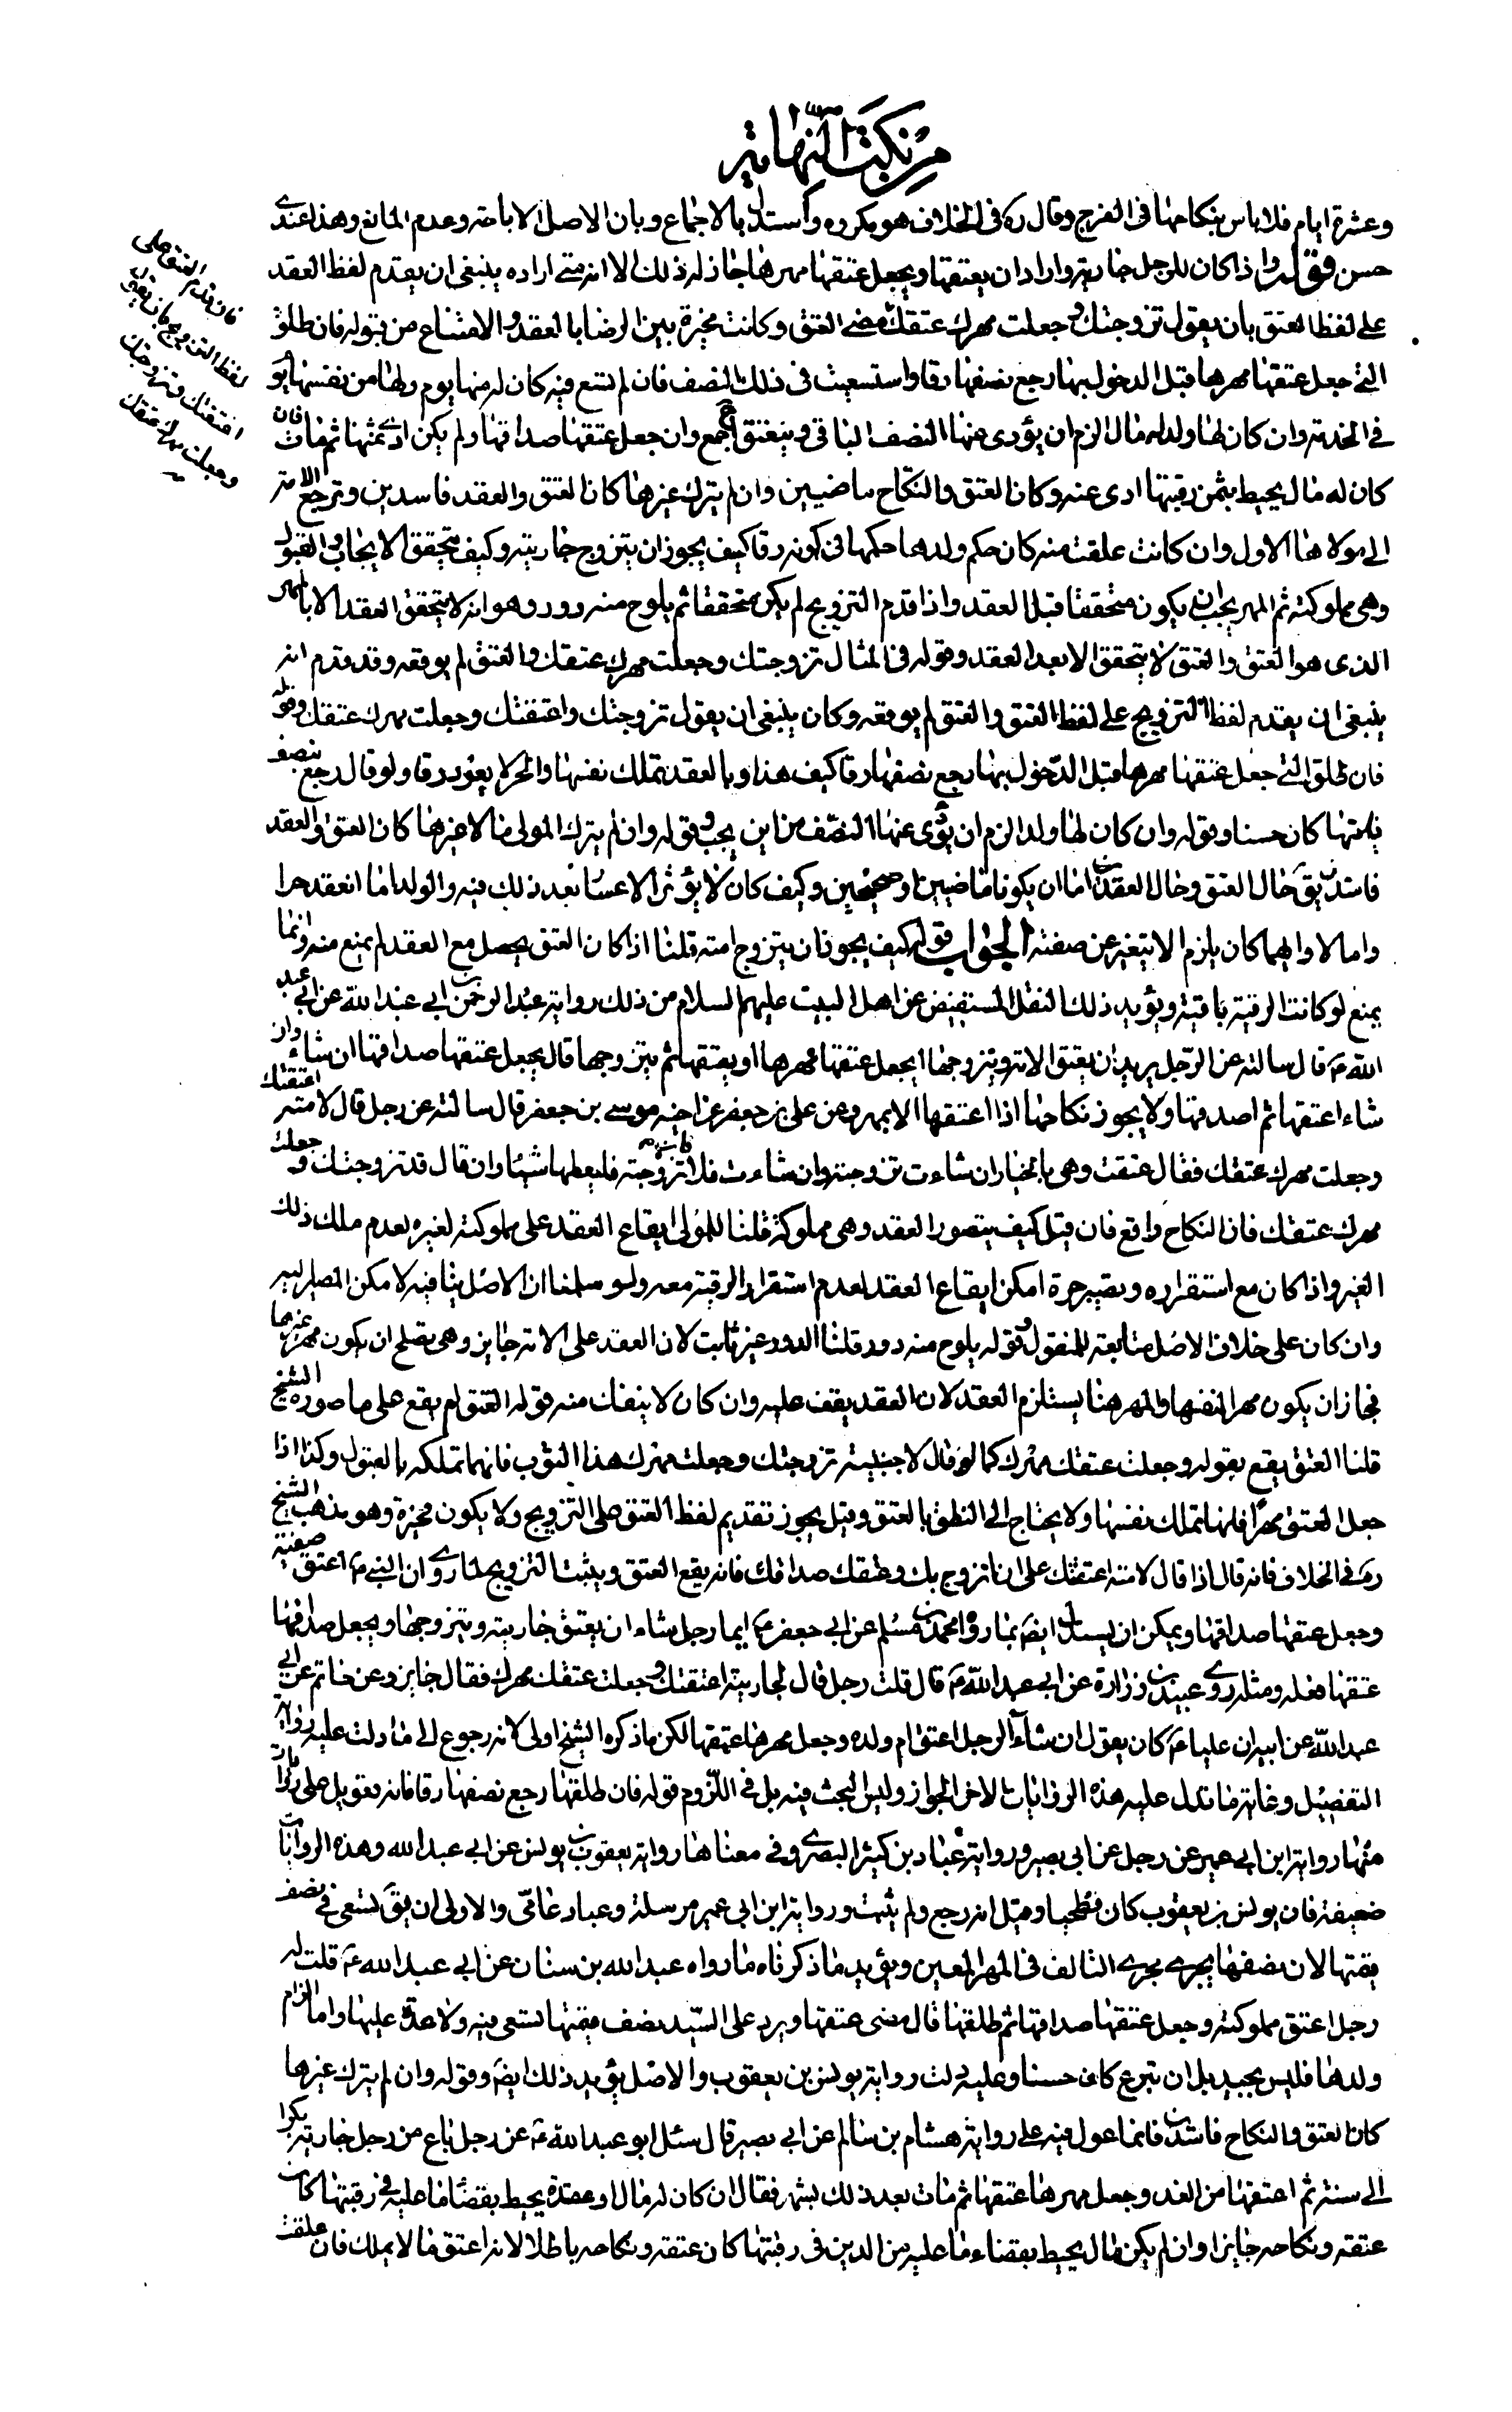 من نكت النهاية
وعشرة ايام فلا باس بنكاحها فى الفرج وقال ره فى الخلاف هو مكروه واستدل بالاجماع وبان الاصل الاباحة وعدم المانع وهذا عندى
حسن قوله واذا كان للرجل جارية وارادان يعتقها ويجعل عتقها مهرها جاز له ذلك الا انه متى اراده ينبغى ان يقدم لفظ العقد
على لفظ العتق بان يقول تزوجتك وجعلت مهرك عتقك مضى العتق وكانت مخيرة بين الرضا بالعقد والامتناع من قبوله فان طلق
التى جعل عتقها مهرها قبل الدخول بها رجع نصفها رقا واستسعيت فى ذلك النصف فان لم تسع فيه كان له منها يوم ولها من نفسها يوم
فى الخدمة وان كان لها ولد له مال الزم ان يؤدى عنها النصف الباقى وينعتق وان جعل عتقها صداقها ولم يكن ادى ثمنها ثم مات فان
كان له مال يحيط بثمن رقبتها ادى عنه وكان العتق والنكاح ماضيين وان لم يترك غيرها كان العتق والعقد فاسدين وترجع الامة
الى مولاها الاول وان كانت علقت منه كان حكم ولدها حكمها فى كونه رقا كيف يجوز ان يتزوج جاريته وكيف يتحقق الايجاب والقبول
وهى مملوكته ثم المهر يجب ان يكون متحققا قبل العقد واذا قدم التزويج لم يكن متحققا ثم يلوح منه دور وهو انه لا يتحقق العقد الا بالمهر
الذى هو العتق والعتق لا يتحقق الا بعد العقد وقوله فى المثال تزوجتك وجعلت مهرك عتقك والعتق لم يوقعه وقد قدم انه
ينبغى ان يقدم لفظ التزويج على لفظ العتق والعتق لم يوقعه وكان ينبغى ان يقول تزوجتك واعتقتك وجعلت مهرك عتقك وقوله
فان طلق التى جعل عتقها مهرها قبل الدخول بها رجع نصفها رقا كيف هذا وبالعقد تملك نفسها والحر لا يعود رقا ولو قال رجع بنصف
قيمتها كان حسنا وقوله وان كان لها ولد الزم ان يؤدى عنها النصف من اين يجب وقوله وان لم يترك المولى مالا غيرها كان العتق والعقد
فاسدين يق حال العتق وحال العقد اما ان يكونا ماضيين او صحيحين وكيف كان لا يؤثر الاعسار بعد ذلك فيه والولد اما انعقد حرا
واما لا وايهما كان يلزم الا يتغير عن صفته الجواب قوله كيف يجوز ان يتزوج امته قلنا اذا كان العتق يحصل مع العقد لم يمنع منه وانما
يمنع لو كانت الرقية باقية ويؤيد ذلك النقل المستفيض عن اهل البيت عليهم السلام من ذلك رواية عبد الرحمن بن ابى عبد الله عن ابى عبد
الله ع قال سالته عن الرجل يريد ان يعتق الامة ويتزوجها ايجعل عتقها مهرها او يعتقها ثم يتزوجها قال يجعل عتقها صداقها ان شاء وان
شاء اعتقها ثم اصدقها ولا يجوز نكاحها اذا اعتقها الا بمهر وعن على بن جعفر عن اخيه موسى بن جعفر قال سالته عن رجل قال لامته اعتقتك
وجعلت مهرك عتقك فقال عتقت وهى بالخيار ان شاءت تزوجته وان شاءت فلا فان تزوجته فليعطها شيئا وان قال قد تزوجتك وجعلت
مهرك عتقك فان النكاح واقع فان قيل كيف يتصور العقد وهى مملوكة قلنا للمولى ايقاع العقد على مملوكته لغيره لعدم ملك ذلك
الغير واذا كان مع استقراره وتصير حرة امكن ايقاع العقد لعدم استقرار الرقية معه ولو سلمنا ان الاصل ينافيه لامكن المصير اليه
وان كان على خلاف الاصل متابعة للمنقول وقوله يلوح منه دور قلنا الدور غير ثابت لان العقد على الامة جايز وهى تصلح ان يكون مهرا لغيرها
فجاز ان يكون مهرا لنفسها والمهر هنا يستلزم العقد لان العقد يقف عليه وان كان لا ينفك منه قوله العتق لم يقع على ما صوره الشيخ
قلنا العتق يقع بقوله وجعلت عتقك مهرك كما لو قال لاجنبية تزوجتك وجعلت مهرك هذا الثوب فانها تملكه بالقبول وكذا اذا
جعل العتق مهرا فانها تملك نفسها ولا يحتاج الى النطق بالعتق وقيل يجوز تقديم لفظ العتق على التزويج ولا يكون مخيرة وهو مذهب الشيخ
ره فى الخلاف فانه قال اذا قال لامته اعتقتك على ان اتزوج بك وعتقك صداقك فانه يقع العتق ويثبت التزويج لما روى ان النبى ص اعتق صفية
وجعل عتقها صداقها ويمكن ان يستدل ايضا بما رواه محمد بن مسلم عن ابى جعفر ع ايما رجل شاء ان يعتق جاريته ويتزوجها ويجعل صداقها
عتقها فعل ومثله روى عبيد بن زرارة عن ابى عبد الله ع قال قلت رجل قال لجاريته اعتقتك وجعلت عتقك مهرك فقال جايز وعن حاتم عن ابى
عبد الله عن ابيه ان عليا ع كان يقول ان شاء الرجل اعتق ام ولده وجعل مهرها عتقها لكن ما ذكره الشيخ اولى لانه رجوع الى ما دلت عليه رواية
التفصيل وغاية ما تدل عليه هذه الروايات الاخر الجواز وليس البحث فيه بل فى اللزوم قوله فان طلقها رجع نصفها رقا فانه تعويل على روايات
منها رواية ابن ابى عمير عن رجل عن ابى بصير ورواية عباد بن كثير البصرى وفى معناها رواية يعقوب بن يونس عن ابى عبد الله وهذه الروايات
ضعيفة فان يونس بن يعقوب كان فطحيا وقيل انه رجع ولم يثبت ورواية ابن ابى عمير مرسلة وعباد عامى والاولى ان يق تستسعى فى نصف
قيمتها لان نصفها يجرى مجرى التالف فى المهر المعين ويؤيد ما ذكرناه ما رواه عبد الله بن سنان عن ابى عبد الله ع قلت له
رجل اعتق مملوكته وجعل عتقها صداقها ثم طلقها قال مضى عتقها ويرد على السيد نصف قيمتها تسعى فيه ولا عدة عليها واما الزام
ولدها فليس بجيد بل ان تبرع كان حسنا وعليه دلت رواية يونس بن يعقوب والاصل يؤيد ذلك ايضا وقوله وان لم يترك غيرها
كان العتق والنكاح فاسدين فانما عول فيه على رواية هشام بن سالم عن ابى بصير قال سئل ابو عبد الله ع عن رجل باع من رجل جارية بكرا
الى سنة ثم اعتقها من الغد وجعل مهرها عتقها ثم مات بعد ذلك بشهر فقال ان كان له مال او عقدة يحيط بقضاء ما عليه فى رقبتها كان
عتقه ونكاحه جايزا وان لم يكن مال يحيط بقضاء ما عليه من الدين فى رقبتها كان عتقه ونكاحه باطلا لانه اعتق ما لا يملك فان علقت
فان قدم العتق على
لفظ التزويج بان يقول
اعتقتك وتزوجتك
وجعلت مهرك عتقك